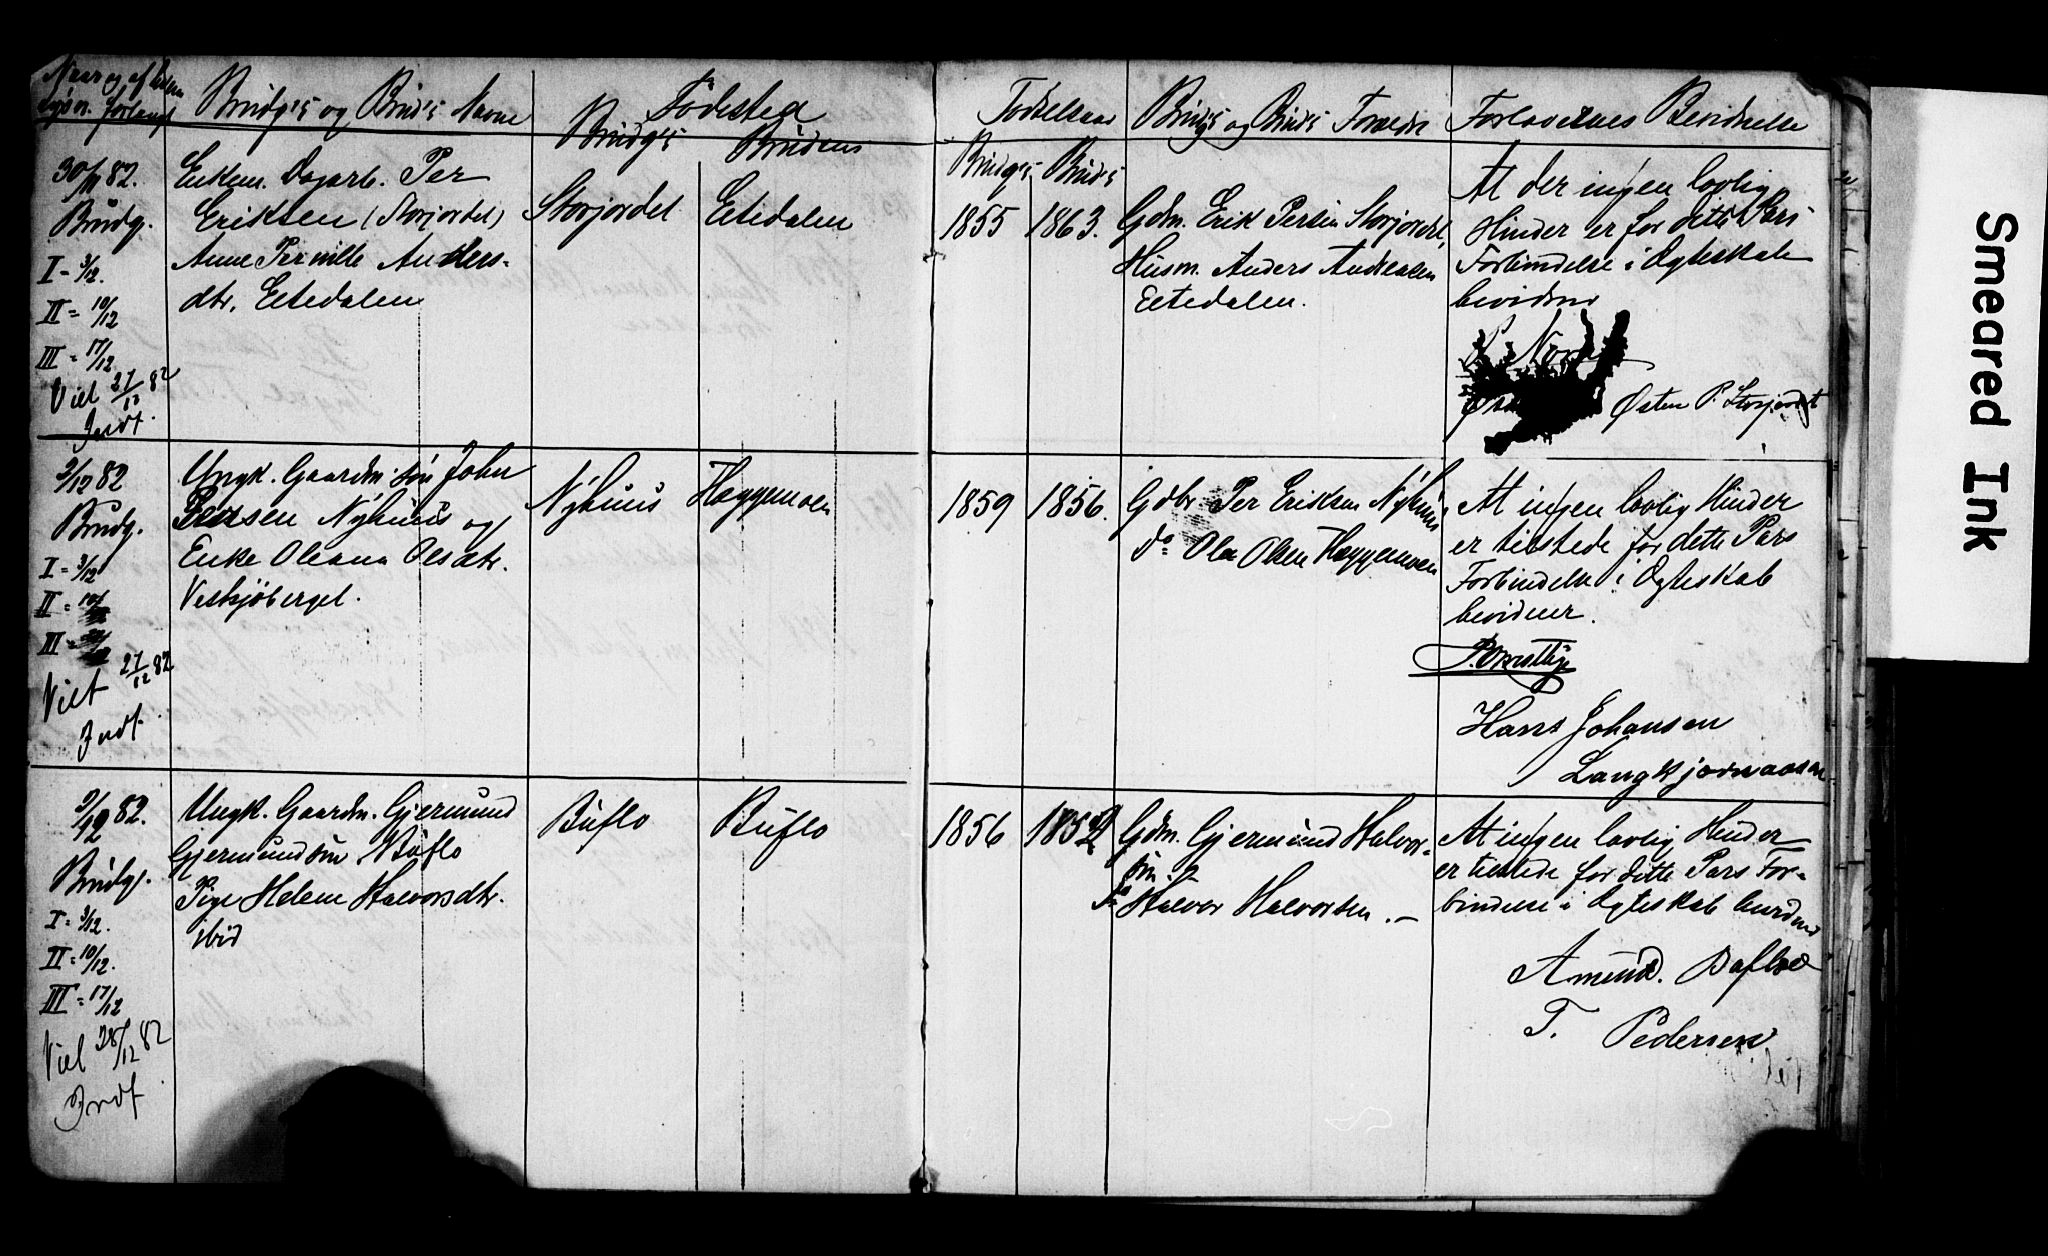 Naar og af hvem
lysn. forlangt
Brudg's og Bruds Navne
Fødested
Brudg's Brudens
Fødselsaar
Brudg's Bruds
Brudg's og Bruds Forældre
Forlovernes Bevidnelse
30/11 82.
Brudg.
I - 3/12.
II = 10/12
III = 17/12.
Viet 27/12 82
Indf.
Enkem. Dagarb. Per
Eriksen (Storjordet)
Anne Pernille Anders-
dtr. Eltedalen
Storjordet
Eltedalen
1855
1863.
Gdm. Erik Persen Storjordet,
Husm. Anders Andersen
Eltedalen.
At der ingen lovlig
Hinder er for dette Pars
Forbindelse i Ægteskab
bevidner
Østen P. Storjordet
2/12 82
Brudg.
I = 3/12
II = 10/
III =
Viet 27/12 82
Indf.
Ungk. Gaardm. søn John
Persen Nÿhuus og
Enke Oleana Olsdtr.
Vestsjøberget.
Nÿhuus
Hæggemoen
1859
1856.
Gdbr. Per Eriksen Nÿhuus
do Ole Olsen Hæggemoen
At ingen lovlig Hinder
er tilstede for dette Pars
Forbindelse i Ægteskab
bevidner.
Hans Johansen
Langkjørnaasen
2/12 82.
Brudg.
I = 3/12.
II = 10/12.
III = 17/12
Viet 28/12 82
Indf
Ungk. Gaardm. Gjermund
Gjermundsen Buflo
Pige Helene Halvorsdtr.
ibid
Buflo
Buflo
1856
1852
Gdm. Gjermund Halvor-
sen.
do Halvor Halvorsen. -
At ingen lovlig Hinder
er tilstede for dette Pars For-
bindelse i Ægteskab bevidner
Amund. Bufloe
T. Pedersen
Smeared Ink